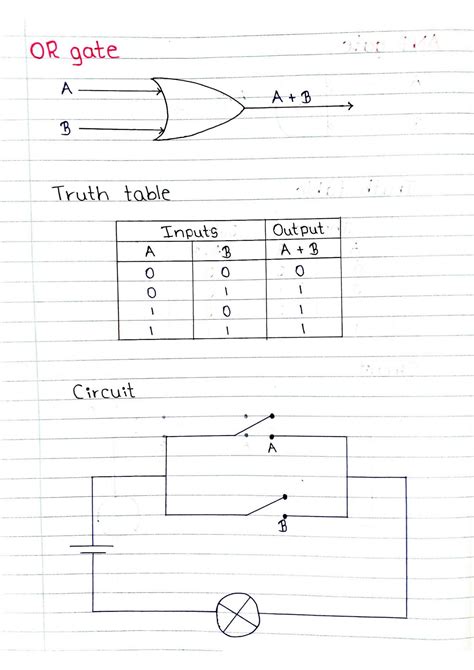 OR gate
A
A + B
B
Truth table
Inputs Output
A B A + B
0 0 0
0 1 1
1 0 1
1 1 1
Circuit
A
B